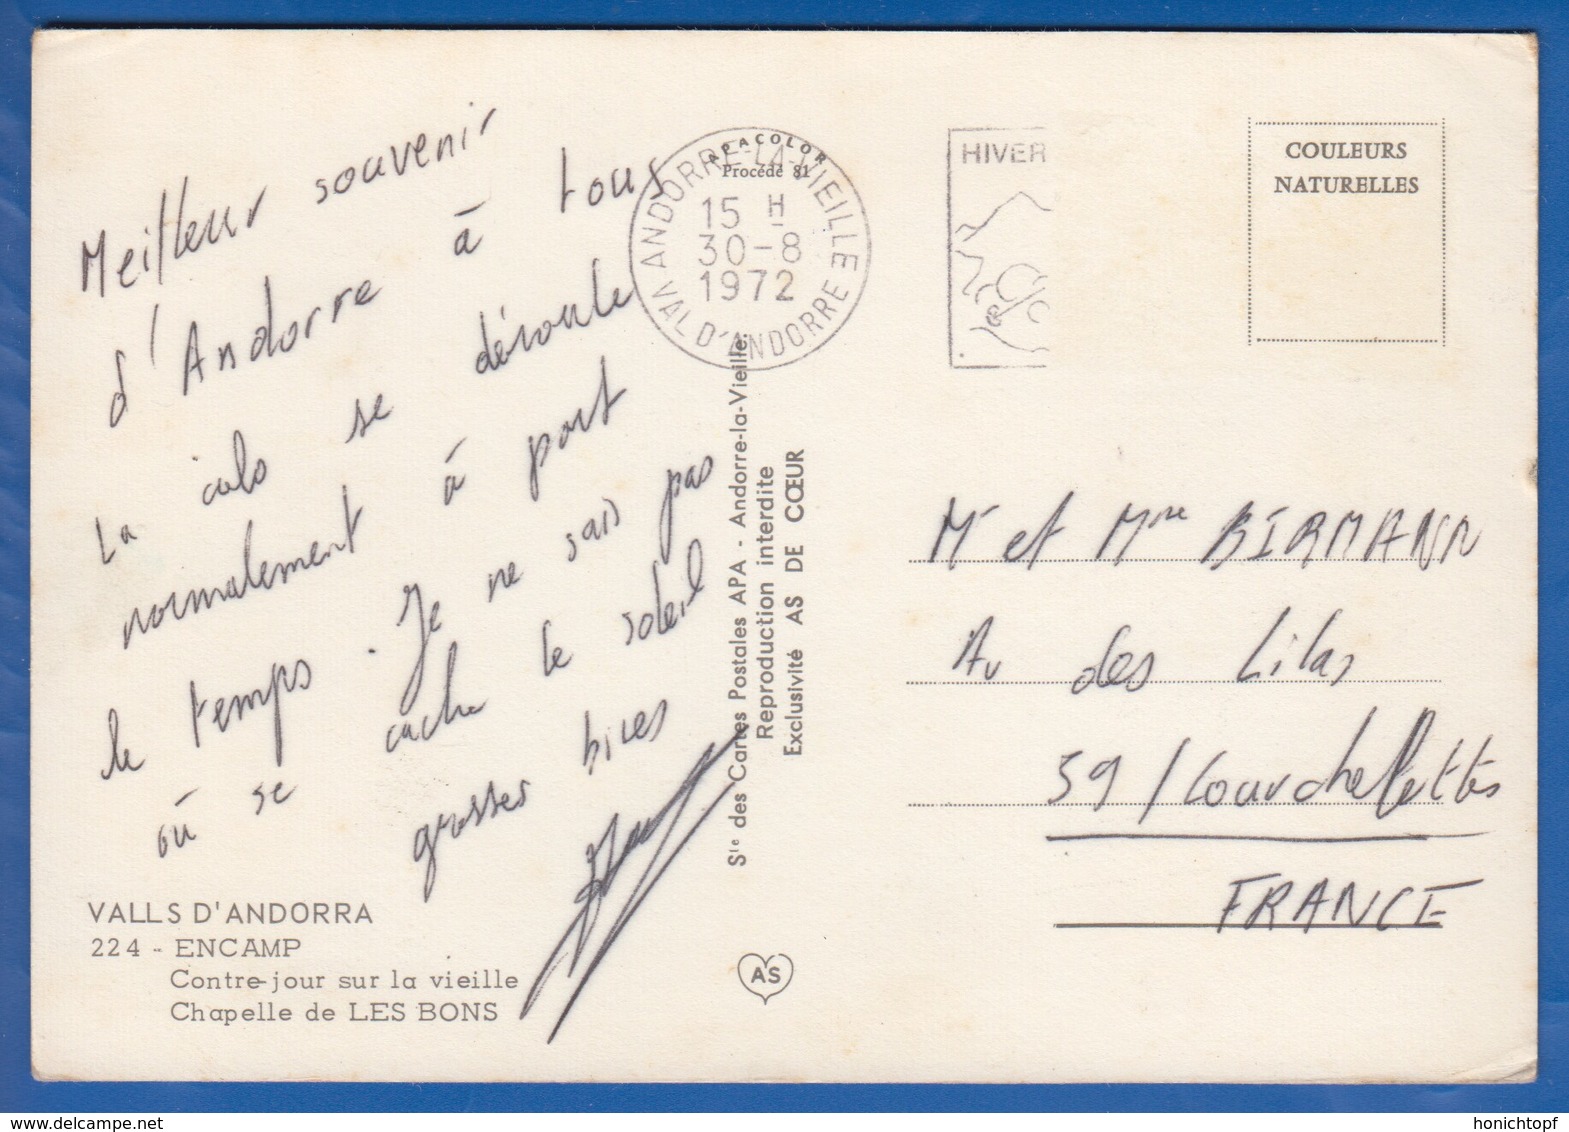 Meilleur souvenir
d'Andorre à tous
La colo se déroule
normalement à part
le temps. Je ne sais pas
où se cache le soleil
grosses bises
VALLS D'ANDORRA
224 - ENCAMP
Contre-jour sur la vieille
Chapelle de LES BONS
APACOLOR
Procédé 81
ANDORRE-LA-VIEILLE
15 H
30-8
1972
VAL D'ANDORRE
HIVER
COULEURS
NATURELLES
Sté des Cartes Postales APA - Andorre-la-Vieille.
Reproduction interdite
Exclusivité AS DE CŒUR
AS
Mr et Mme BIRMANN
Av des Lilas
59/Courchelettes
FRANCE
www.delcampe.net
honichtopf